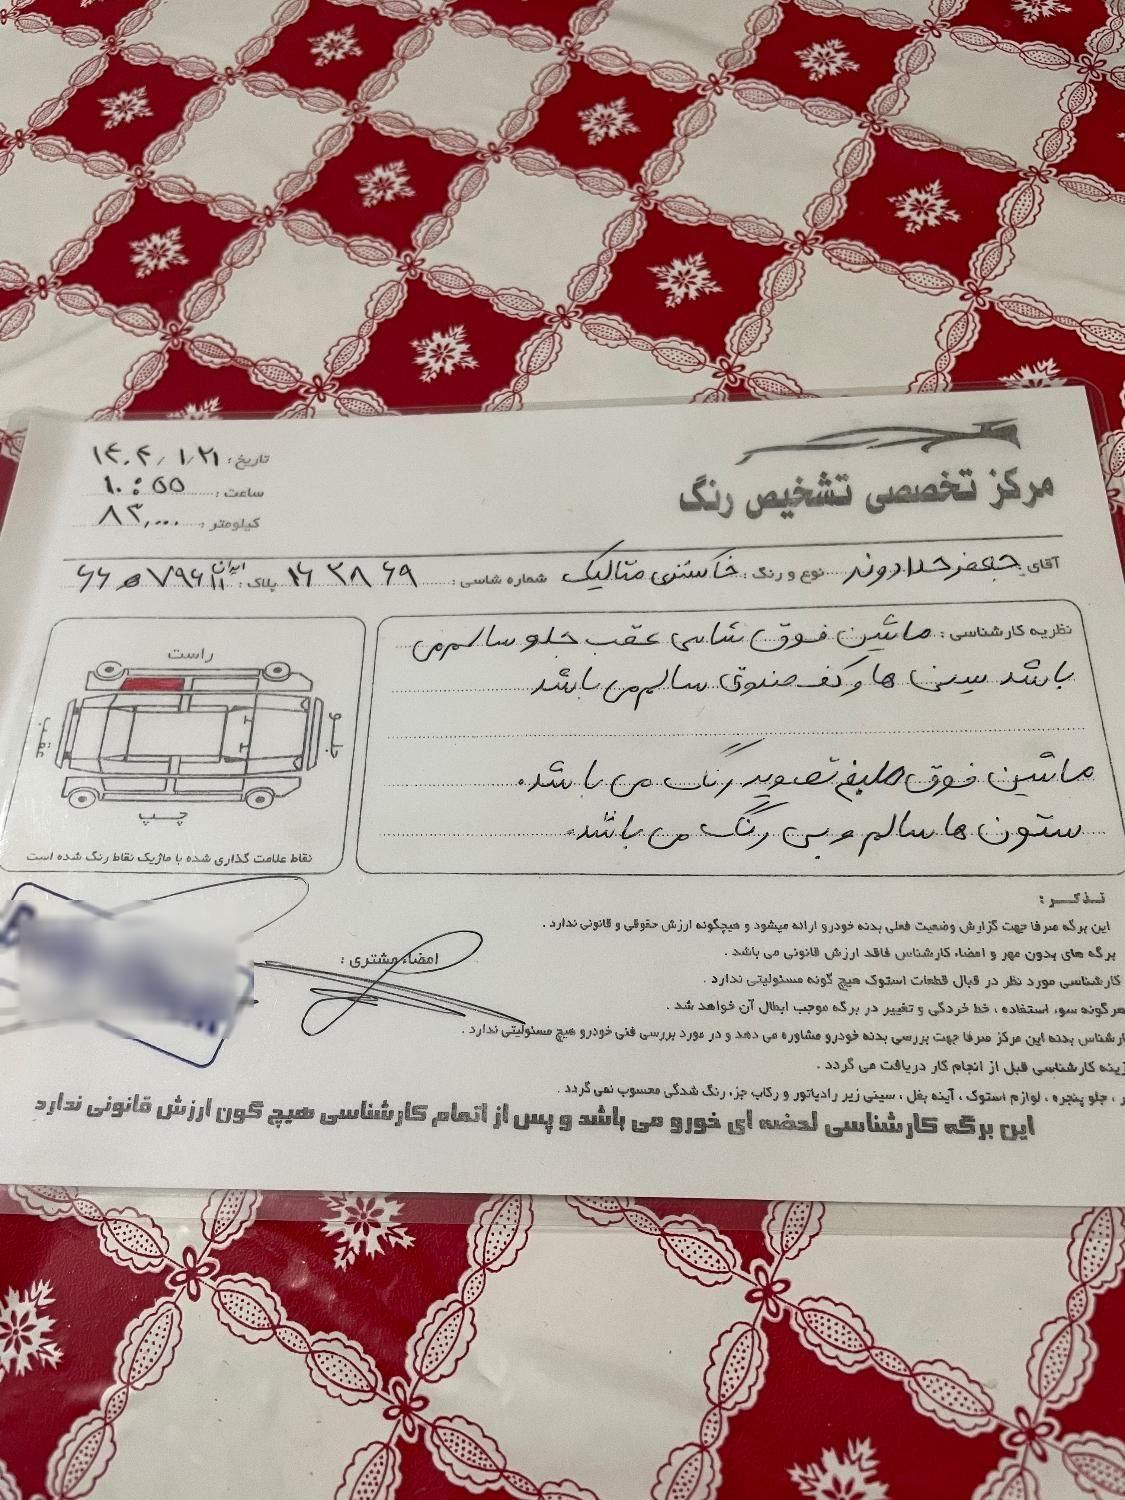 مرکز تخصصی تشخیص رنگ
تاریخ: ۱۴۰۴/۱/۲۱
ساعت: ۱۰:۵۵
کیلومتر: ۸۳,۰۰۰
آقای جعفر خدادوند نوع و رنگ: خاکستری متالیک شماره شاسی: پلاک: ایران ۱۱
نظریه کارشناسی: ماشین فوق شاسی عقب جلو سالم می
باشد سینی ها و کف صندوق سالم می باشد
ماشین فوق طبق تصویر رنگ می باشد.
ستون ها سالم و بی رنگ می باشد.
راست
جلو
عقب
چپ
نقاط علامت گذاری شده با ماژیک نقاط رنگ شده است
تذکر:
این برگه صرفا جهت گزارش وضعیت فعلی بدنه خودرو ارائه میشود و هیچگونه ارزش حقوقی و قانونی ندارد.
برگه های بدون مهر و امضاء کارشناس فاقد ارزش قانونی می باشد.
کارشناسی مورد نظر در قبال قطعات استوک هیچ گونه مسئولیتی ندارد.
هرگونه سوء استفاده، خط خردگی و تغییر در برگه موجب ابطال آن خواهد شد.
کارشناس بدنه این مرکز صرفا جهت بررسی بدنه خودرو مشاوره می دهد و در مورد بررسی فنی خودرو هیچ مسئولیتی ندارد.
هزینه کارشناسی قبل از انجام کار دریافت می گردد.
، جلو پنجره، لوازم استوک، آینه بغل، سینی زیر رادیاتور و رکاب جزء رنگ شدگی محسوب نمی گردد.
امضاء مشتری:
این برگه کارشناسی لحضه ای خورو می باشد و پس از اتمام کارشناسی هیچ گون ارزش قانونی ندارد